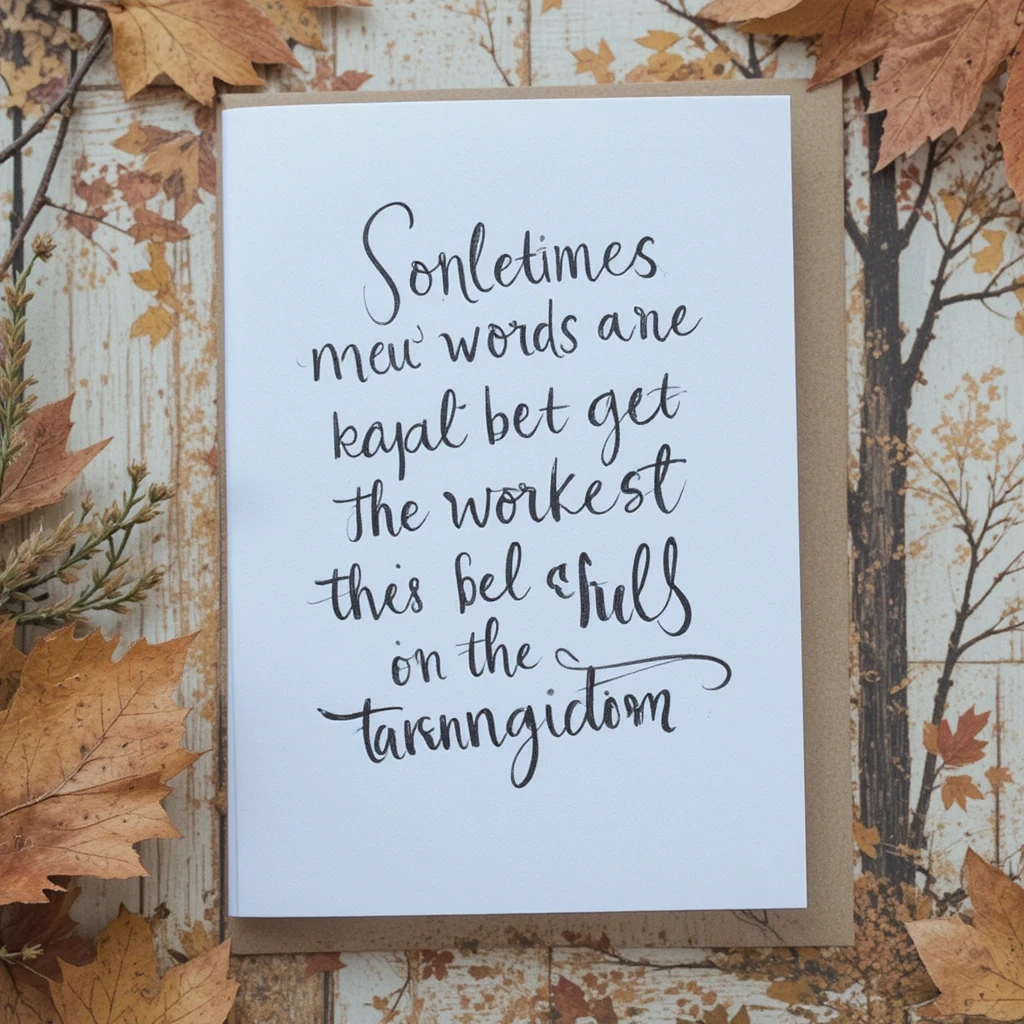 Sonletimes
meu words ane
kapal bet get
the workest
this bel
on the
tarknngidom